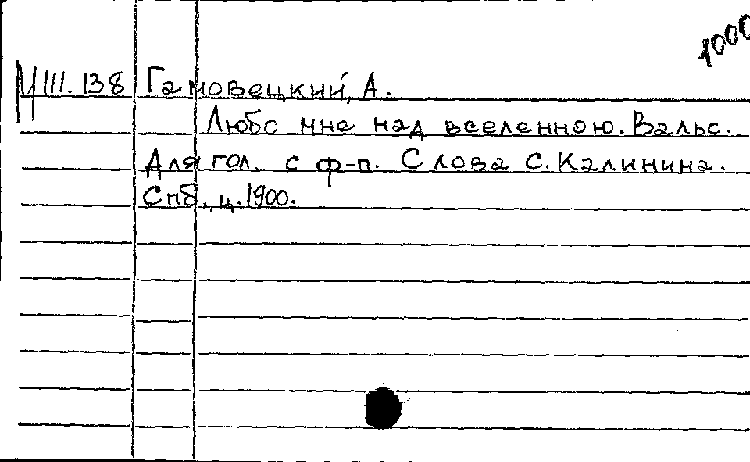 1000
МIII.138 Гановецкий, А.
Любо мне над вселенною. Вальс.
Для гол. с ф-п. Слова С. Калинина.
Спб., ц. 1900.